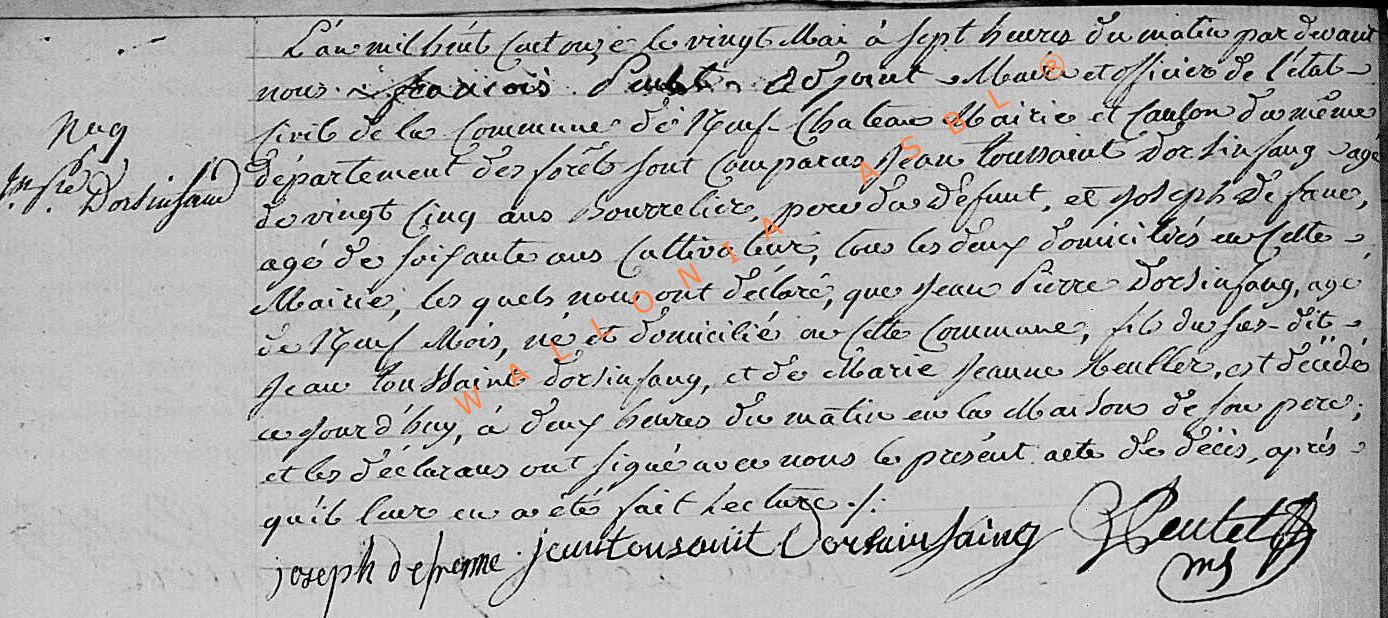 L'an mil huit cent onze le vingt Mai à sept heures du matin par devant
nous françois Adjoint Maire et officier de l'état
Civil de la Commune de Neuf-Chateau Mairie et Canton du même
département des forêts sont comparus Jean toussaint Dorsinfang agé
de vingt cinq ans Bourrelier, pere du défunt, et Joseph Defane,
agé de soisante ans Cultivateur, tous les deux domiciliés en Cette
Mairie, les quels nous ont déclaré, que Jean Pierre Dorsinfang, agé
de Neuf Mois, né et domicilié en Cette Commune, fils du sus-dit
Jean toussaint dorsinfang, et de Marie Jeanne Heuller, est décédé
ce jour d'huy, à deux heures du matin en la Maison de son pere;
et les déclarans ont signé avec nous le présent acte de décès, après
qu'il leur en a été fait Lecture ./.
Neuf
Jn Pre
Dorsinfand
joseph defrenne jean tousaint Dorsainfaing
WALLONIA ASBL ®